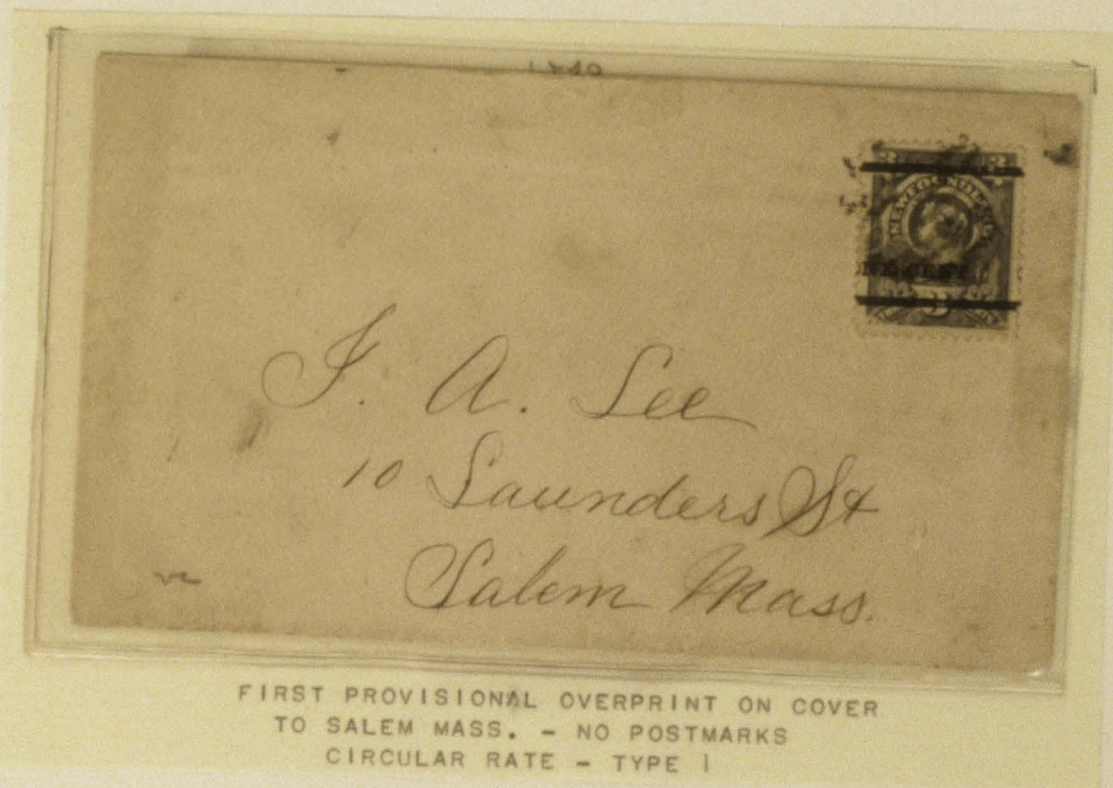 3 3
NEWFOUNDLAND
ONE CENT
3
J. A. Lee
10 Saunders St
Salem Mass.
FIRST PROVISIONAL OVERPRINT ON COVER
TO SALEM MASS. - NO POSTMARKS
CIRCULAR RATE - TYPE I